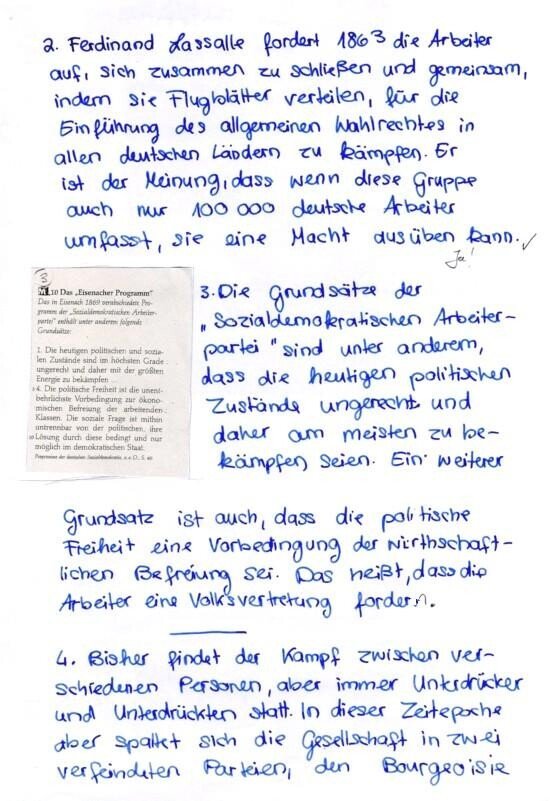 2. Ferdinand Lassalle fordert 1863 die Arbeiter
auf, sich zusammen zu schließen und gemeinsam,
indem sie Flugblätter verteilen, für die
Einführung des allgemeinen Wahlrechtes in
allen deutschen Ländern zu kämpfen. Er
ist der Meinung, dass wenn diese Gruppe
auch nur 100 000 deutsche Arbeiter
umfasst, sie eine Macht ausüben kann. ✓
Ja!
3
M 10 Das „Eisenacher Programm"
Das in Eisenach 1869 verabschiedete Pro-
gramm der „Sozialdemokratischen Arbeiter-
partei" enthält unter anderem folgende
Grundsätze:
1. Die heutigen politischen und sozia-
len Zustände sind im höchsten Grade
ungerecht und daher mit der größten
Energie zu bekämpfen ...
4. Die politische Freiheit ist die unent-
behrlichste Vorbedingung zur ökono-
mischen Befreiung der arbeitenden
Klassen. Die soziale Frage ist mithin
untrennbar von der politischen, ihre
Lösung durch diese bedingt und nur
möglich im demokratischen Staat.
Programme der deutschen Sozialdemokratie, a. a. O., S. 40
3. Die Grundsätze der
„Sozialdemokratischen Arbeiter-
partei" sind unter anderem,
dass die heutigen politischen
Zustände ungerecht und
daher am meisten zu be-
kämpfen seien. Ein weiterer
Grundsatz ist auch, dass die politische
Freiheit eine Vorbedingung der wirthschaft-
lichen Befreiung sei. Das heißt, dass die
Arbeiter eine Volksvertretung fordern.
4. Bisher findet der Kampf zwischen ver-
schiedenen Personen, aber immer Unterdrücker
und Unterdrückten statt. In dieser Zeitepoche
aber spaltet sich die Gesellschaft in zwei
verfeindeten Parteien, den Bourgeoisie